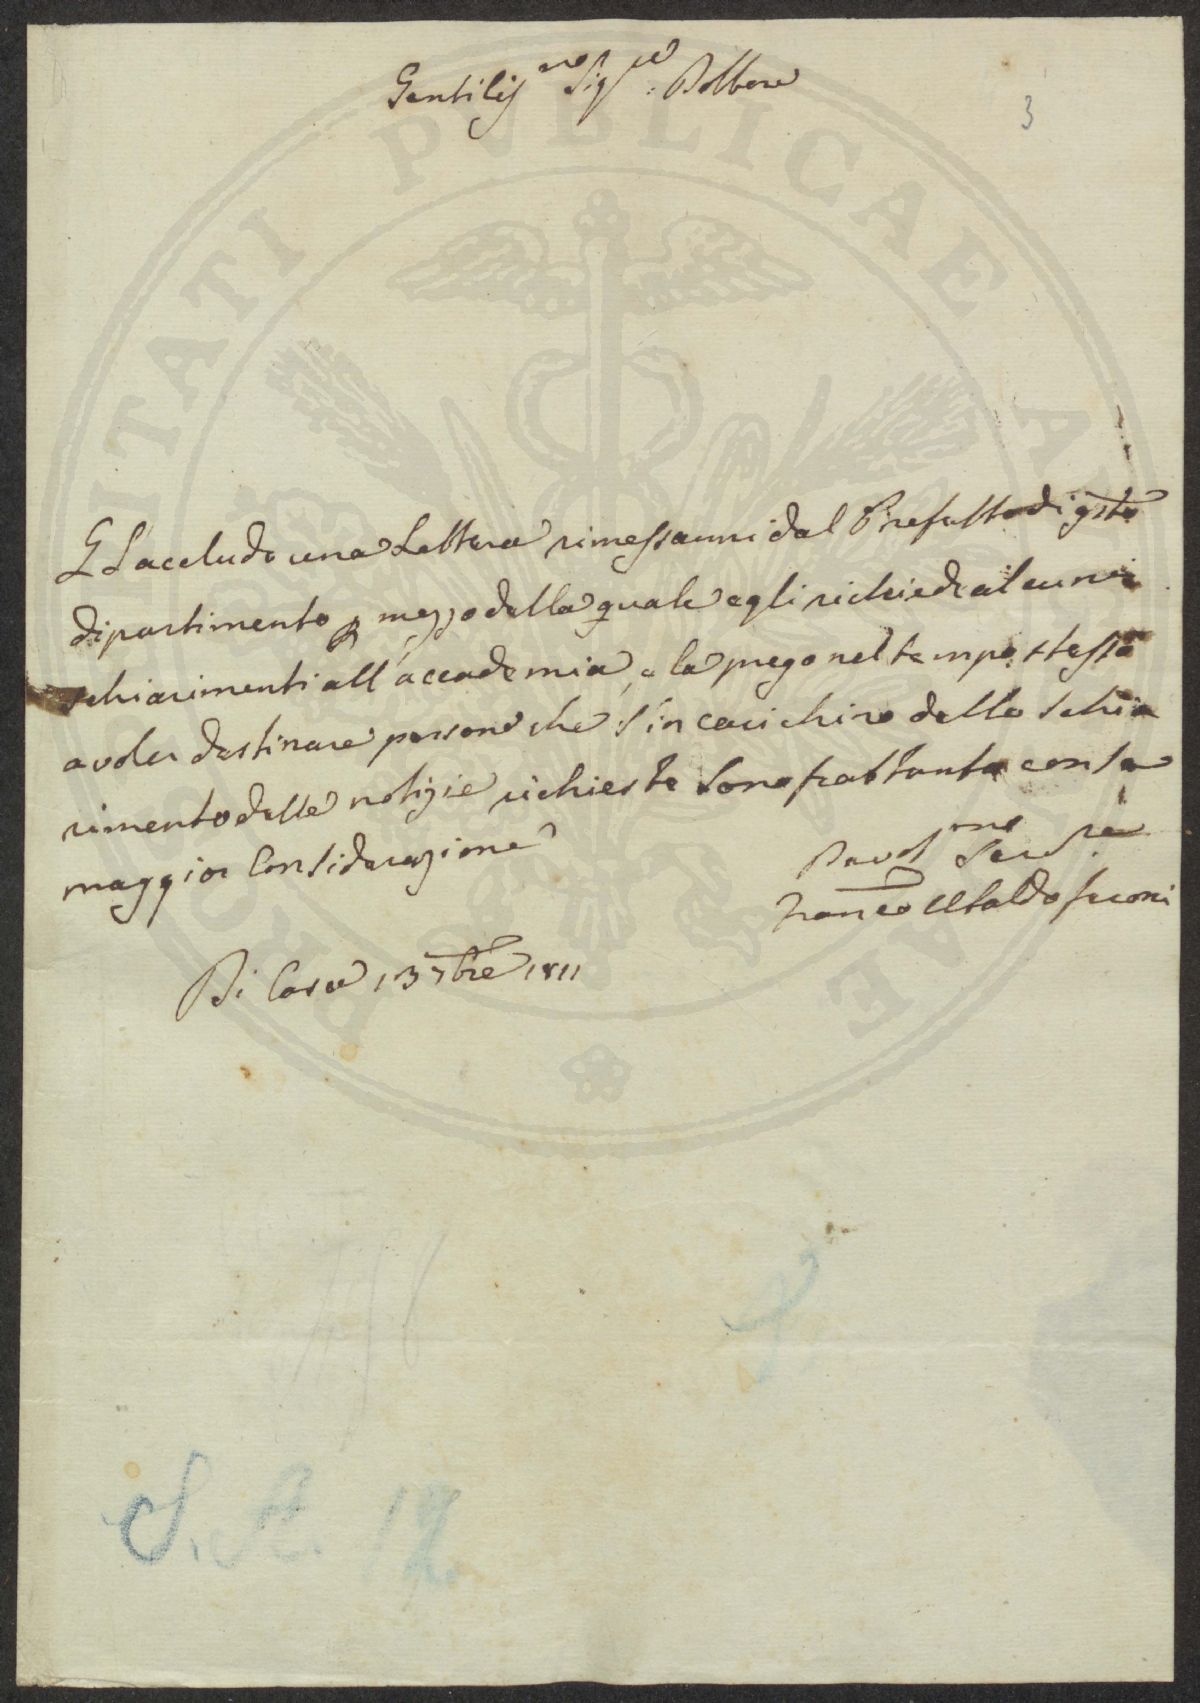 Gentiliss.mo Sig.re Dottore
3
Le accludo una Lettera rimessami dal Prefetto di q.sto
dipartimento p mezzo della quale egli richiede alcuni
schiarimenti all'accademia, e la prego nel tempo stesso
a voler destinare persone che s'incarichino dello schia
rimento delle notizie richieste Sono frattanto con la
maggior Considerazione
Devot.mo Serv.re
Fran.co Ubaldo feroni
Di Casa 13 7bre 1811
S. A. 12.
PUBLICAE